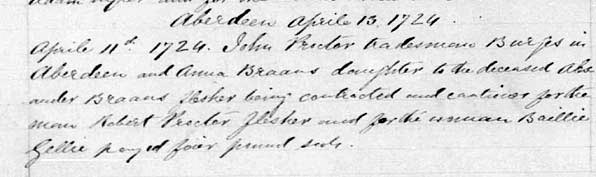 Aberdeen Aprile 13, 1724.
Aprile 11th 1724. John Procter tradesman Burges in
Aberdeen and Anna Braans daughter to the deceased Alex
ander Braans flesher being contracted and cautiner for the
man Robert Procter flesher and for the woman Baillie
Gellie payed four pound scots.